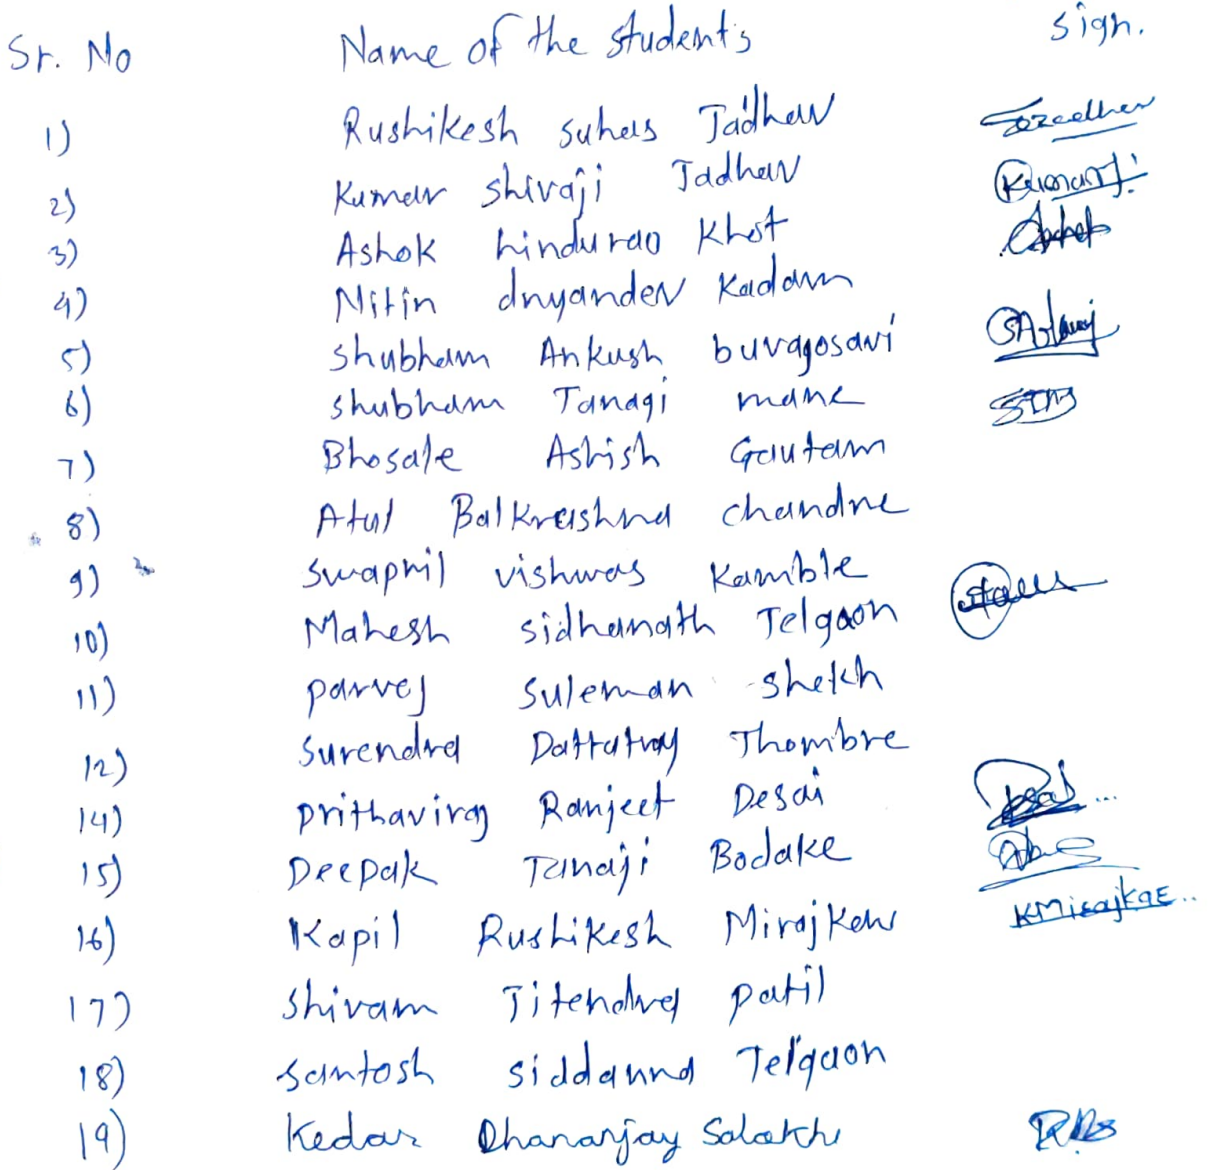 Sr. No Name of the students sign.
1) Rushikesh suhas Jadhav
2) Kumar shivaji Jadhav Kumar J.
3) Ashok hindurao Khot
4) Nitin dnyandev Kadam
5) shubham Ankush buvagosavi
6) shubham Tanagi mane STM
7) Bhosale Ashish Gautam
8) Atul Balkrashna chandne
9) swapnil vishwas Kamble
10) Mahesh sidhanath Telgaon
11) parvej suleman shekh
12) surendra Dattatray Thombre
14) prithaviraj Ranjeet Desai
15) Deepak Tanaji Bodake
16) Kapil Rushikesh Mirajkar KMirajkar..
17) shivam Jitendra patil
18) santosh siddanna Telgaon
19) Kedar Dhananjay Salokhe